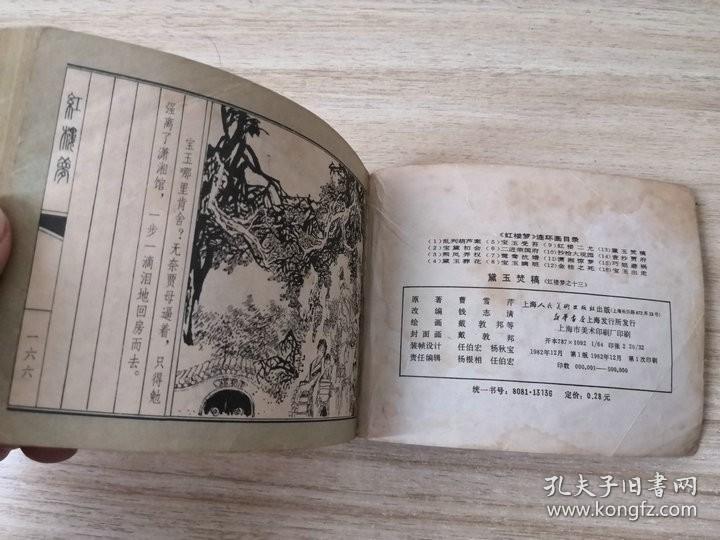 紅樓夢
宝玉哪里肯舍？无奈贾母逼着，只得勉
强离了潇湘馆，一步一滴泪地回房而去。
一六六
《红楼梦》连环画目录
(1)乱判葫芦案 (5)宝玉受笞 (9)红楼二尤 (13)黛玉焚稿
(2)宝黛初会 (6)二进荣国府 (10)抄检大观园 (14)查抄贾府
(3)熙凤弄权 (7)鸳鸯抗婚 (11)潇湘惊梦 (15)巧姐避祸
(4)黛玉葬花 (8)宝玉瞒赃 (12)金桂之死 (16)宝玉出走
黛玉焚稿 (红楼梦之十三)
原著 曹雪芹
改编 钱志清
绘画 戴敦邦等
封面画 戴敦邦
装帧设计 任伯宏 杨秋宝
责任编辑 杨根相 任伯宏
上海人民美术出版社出版 (上海长乐路672弄33号)
新华书店上海发行所发行
上海市美术印刷厂印刷
开本787×1092 1/64 印张 2 20/32
1982年12月 第1版 1982年12月 第1次印刷
印数 000,001—500,000
统一书号：8081·13136 定价：0.28元
孔夫子旧书网
www.kongfz.com